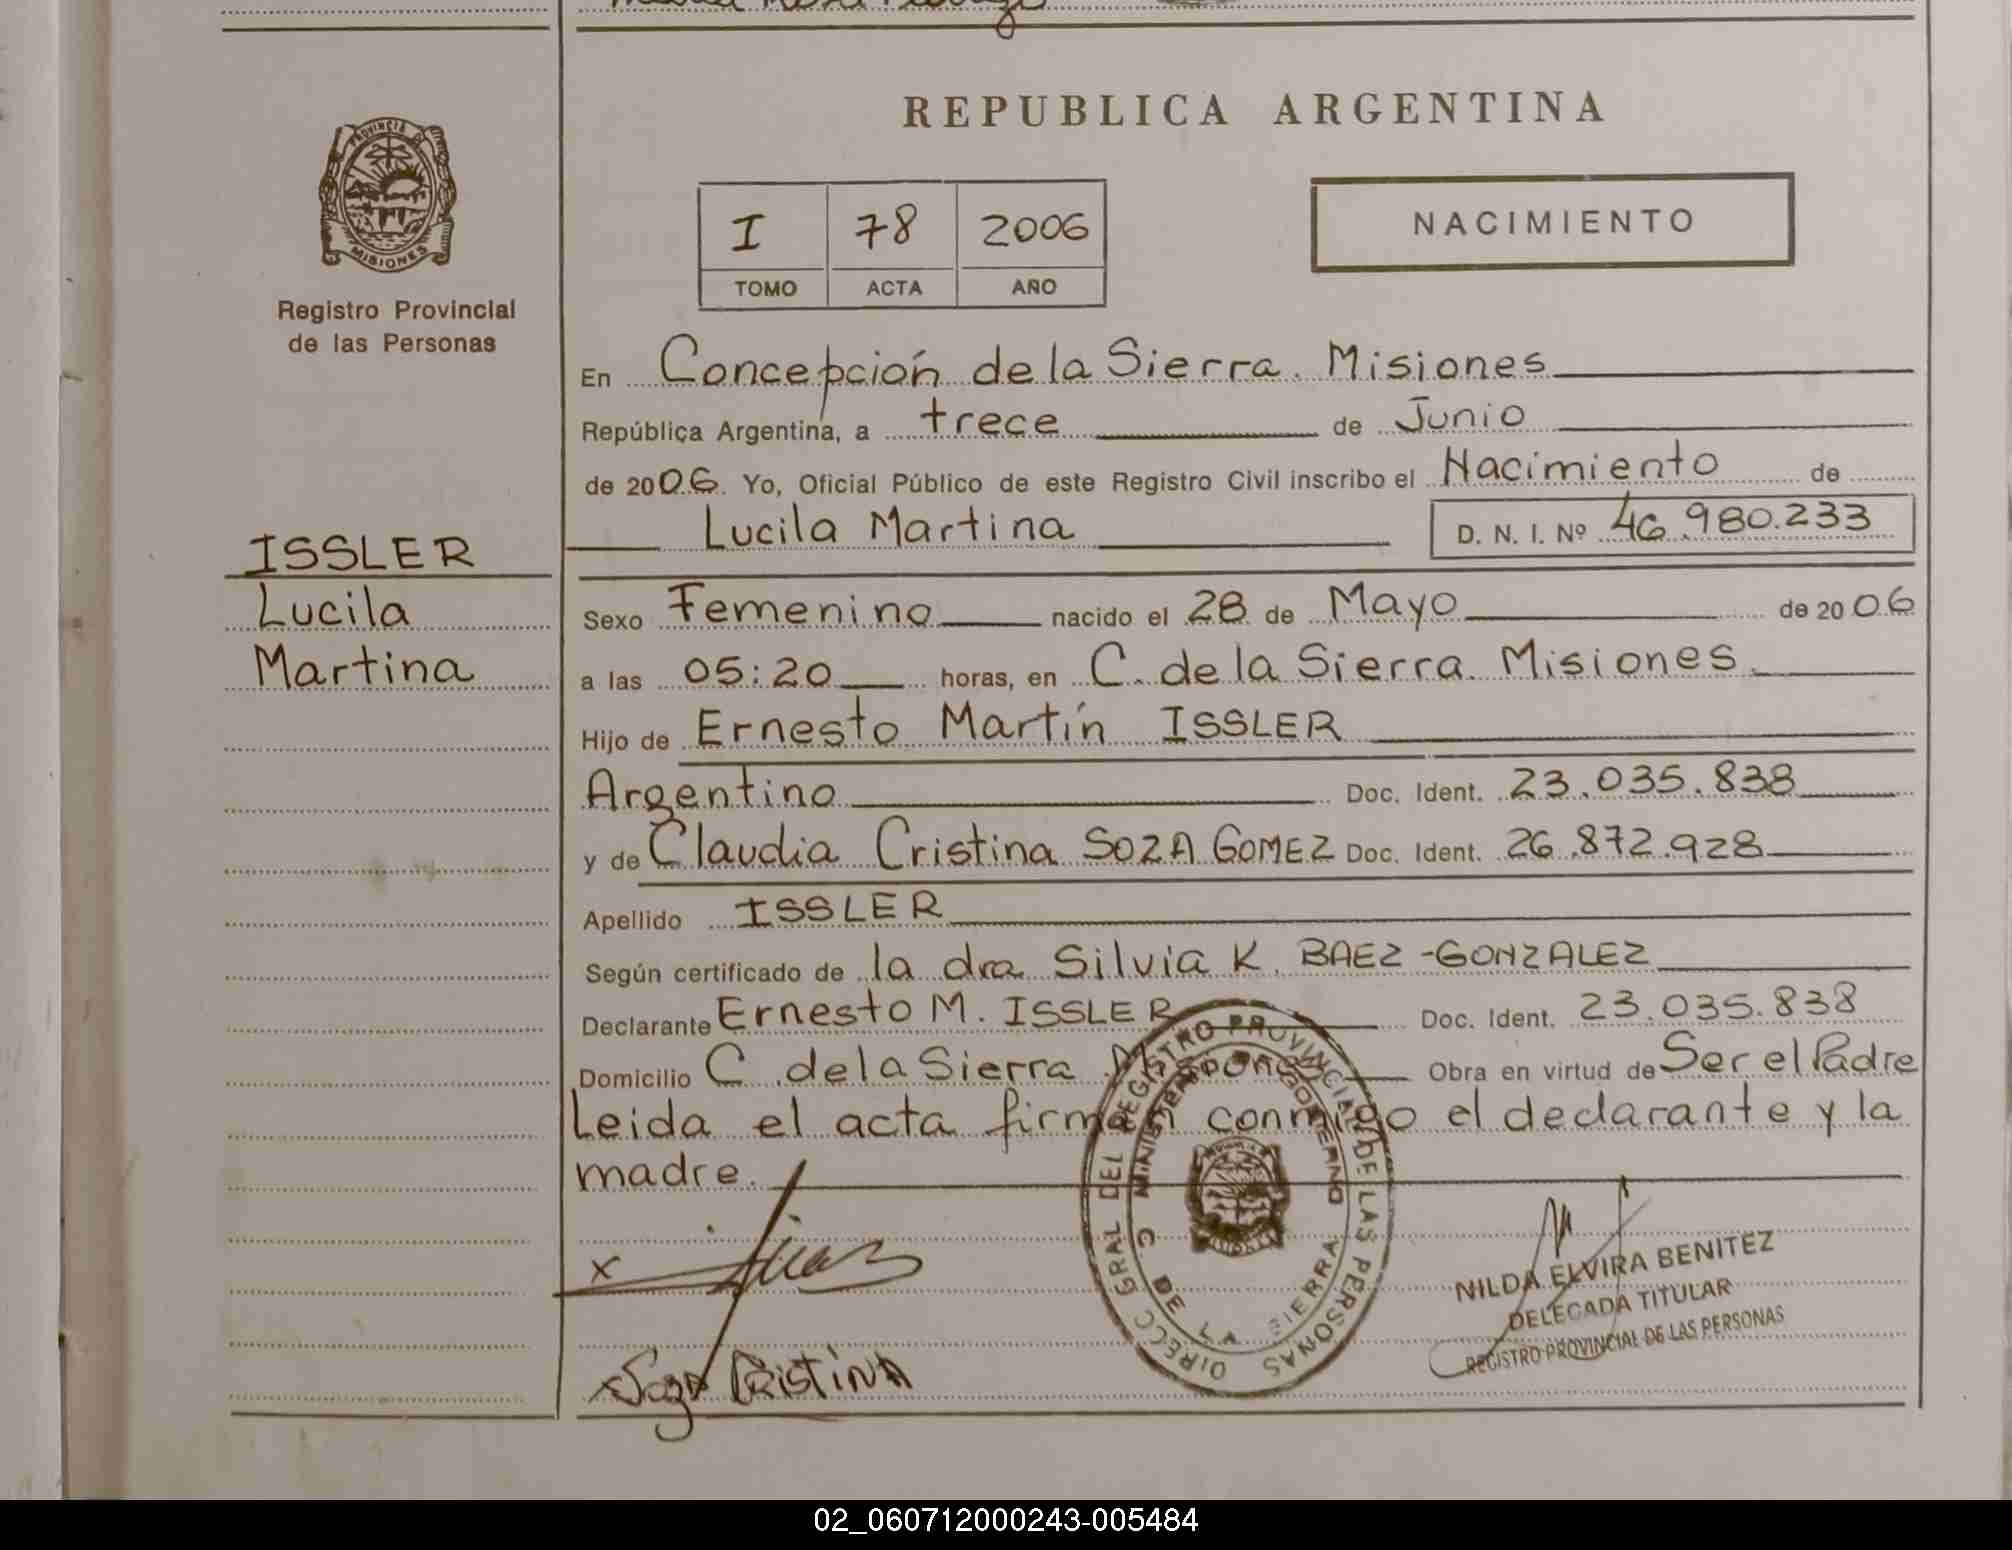 REPUBLICA ARGENTINA
PROVINCIA DE
MISIONES
Registro Provincial
de las Personas
I 78 2006
TOMO ACTA AÑO
NACIMIENTO
En Concepción de la Sierra. Misiones
República Argentina, a trece de Junio
de 2006. Yo, Oficial Público de este Registro Civil inscribo el Nacimiento de
Lucila Martina D. N. I. Nº 46.980.233
ISSLER
Lucila
Martina
Sexo Femenino nacido el 28 de Mayo de 2006
a las 05:20 horas, en C. de la Sierra. Misiones.
Hijo de Ernesto Martín ISSLER
Argentino Doc. Ident. 23.035.838
y de Claudia Cristina SOZA GOMEZ Doc. Ident. 26.872.928
Apellido ISSLER
Según certificado de la dra Silvia K. BAEZ-GONZALEZ
Declarante Ernesto M. ISSLER Doc. Ident. 23.035.838
Domicilio C. de la Sierra Misiones Obra en virtud de Ser el Padre
Leida el acta firman conmigo el declarante y la
madre.
DIRECC GRAL DEL REGISTRO PROVINCIAL DE LAS PERSONAS
MINISTERIO DE GOBIERNO
C DE LA SIERRA
x
x Soza Cristina
NILDA ELVIRA BENITEZ
DELEGADA TITULAR
REGISTRO PROVINCIAL DE LAS PERSONAS
02_060712000243-005484